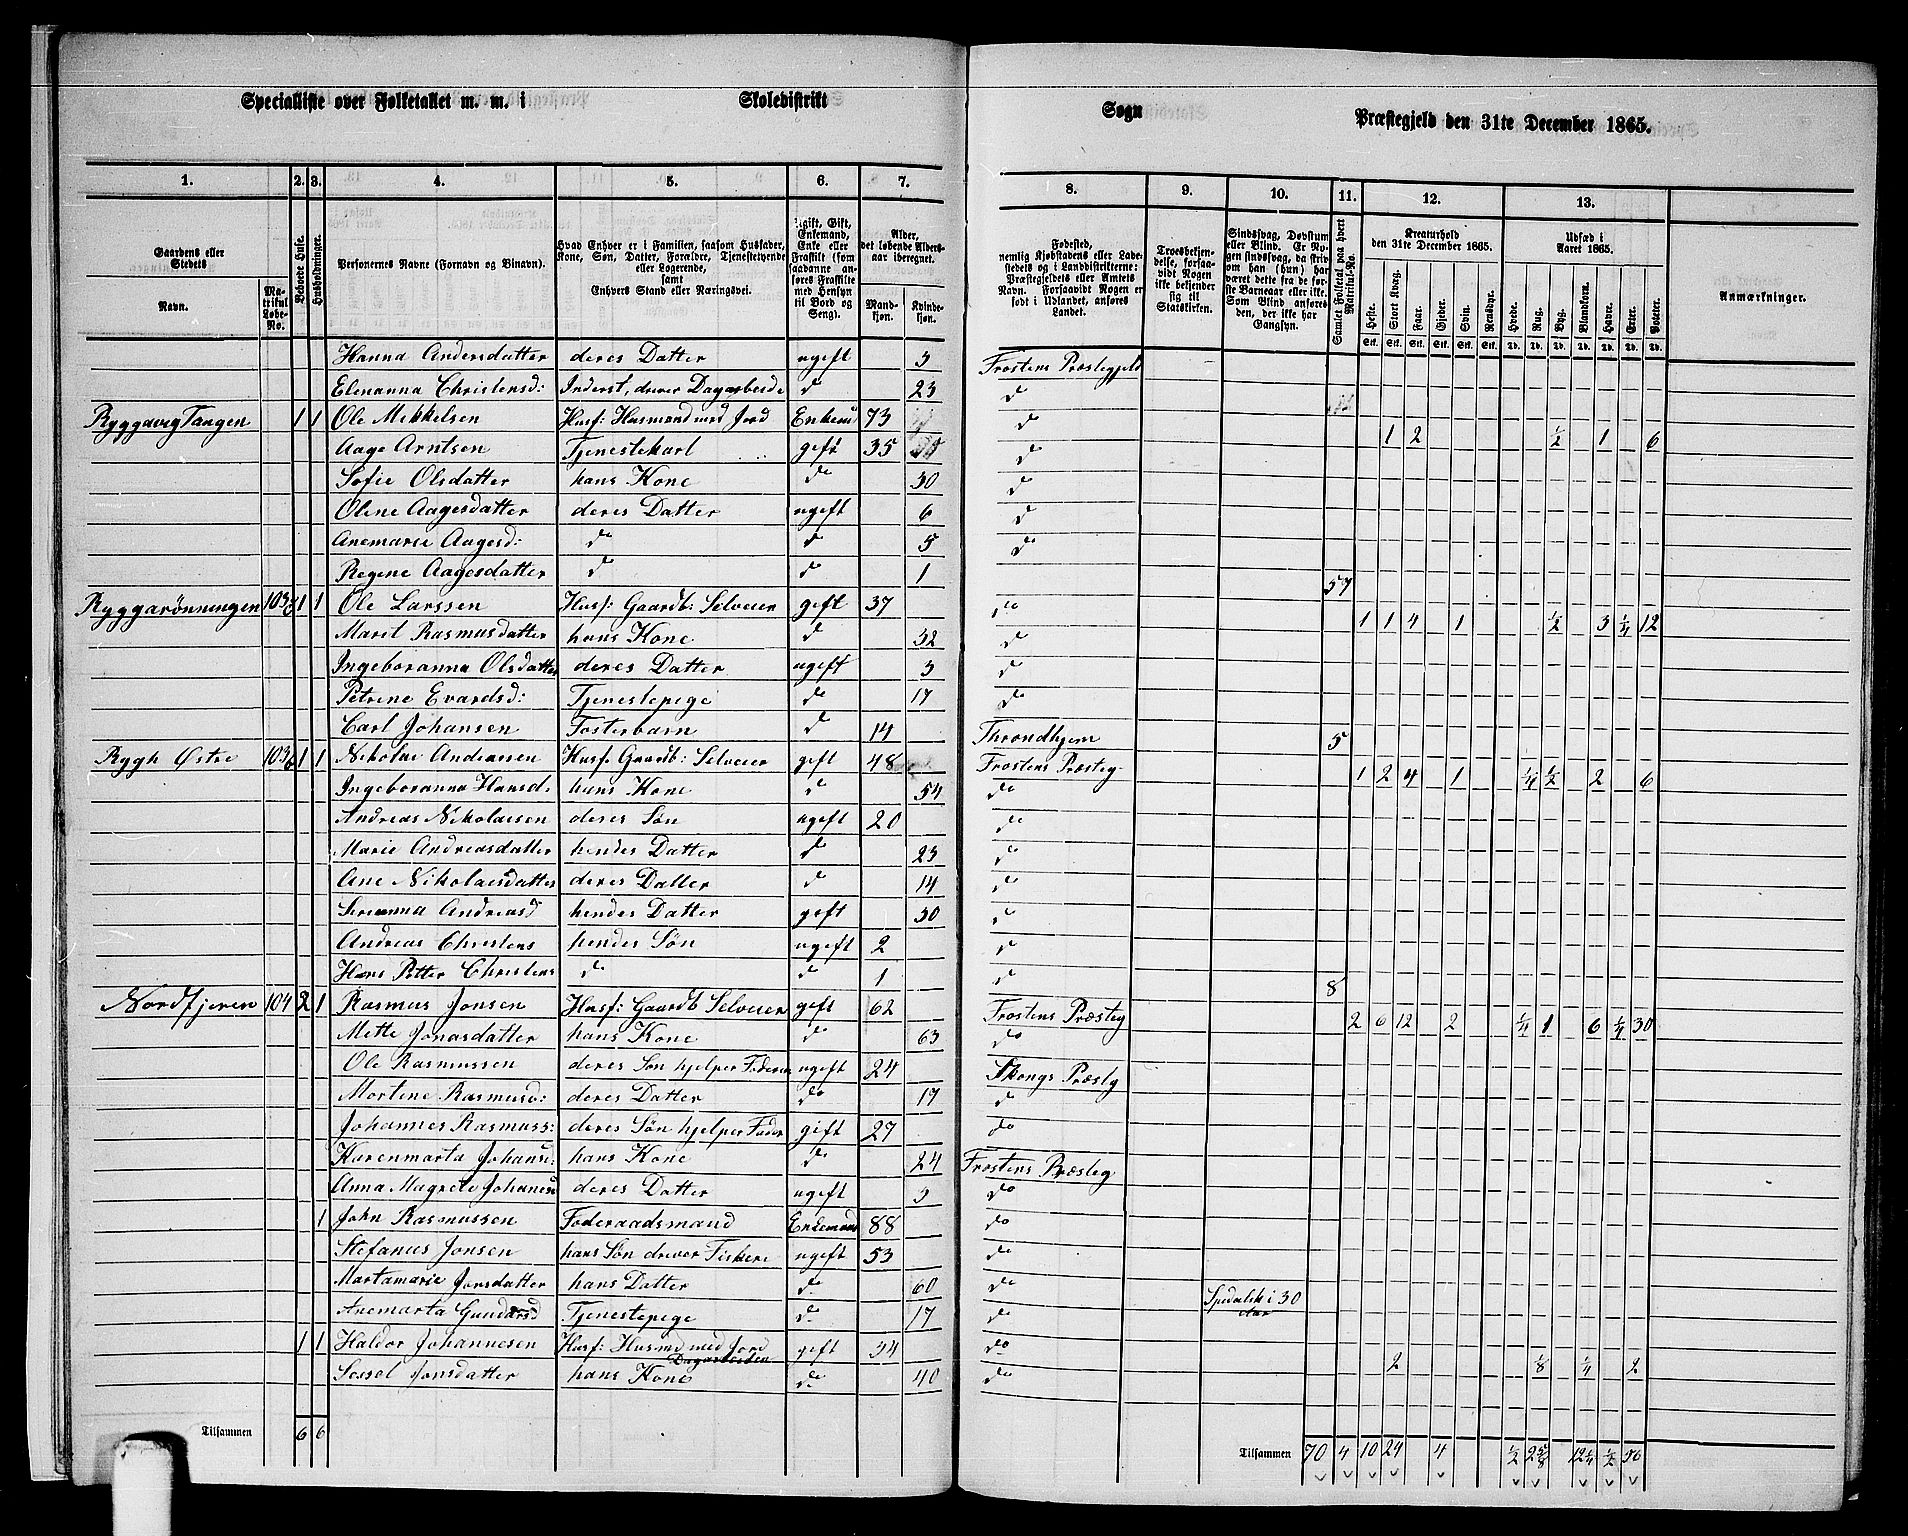 Specialliste over Folketallet m. m. i Skoledistrikt
Sogn Præstegjeld den 31te December 1865.
1. 2. 3. 4. 5. 6. 7.
8. 9. 10. 11. 12. 13.
Gaardens eller Stedets
Navn.
Matrikul Løbe-No.
Beboede Huse.
Husholdninger.
Personernes Navne (Fornavn og Binavn).
Hvad Enhver er i Familien, saasom Husfader, Kone, Søn, Datter, Forældre, Tjenestetyende eller Logerende, samt Enhvers Stand eller Næringsvei.
Ugift, Gift, Enkemand, Enke eller Frastilt (som saadanne anføres Fraskilte med Hensyn til Bord og Seng).
Alder, det løbende Alders-aar iberegnet.
Mandkjøn. Kvindekjøn.
Fødested, nemlig Kjøbstadens eller Ladestedets og i Landdistrikterne: Præstegjeldets eller Amtets Navn. Forsaavidt Nogen er født i Udlandet, anføres Landet.
Troesbekjendelse, forsaavidt Nogen ikke bekjender sig til Statskirken.
Sindssvag, Døvstum eller Blind. Er Nogen sindssvag, da skriv om han (hun) har været dette fra de første Barneaar eller ikke. Som Blind anføres den, der ikke har Gangsyn.
Samlet Folketal paa hvert Matrikul-No.
Kreaturhold den 31te December 1865.
Heste. Stort Kvæg. Faar. Gjeder. Svin. Rensdyr.
Udsæd i Aaret 1865.
Hvede. Rug. Byg. Blandkorn. Havre. Erter. Poteter.
Anmærkninger.
Hanna Andersdatter deres Datter ugift 3 Frostens Præstegjeld
Elenanna Christensd: Inderst, driver Dagarbeide d 23 d
Ryggavig Tangen 1 1 Ole Mekkelsen Husf: Husmand med Jord Enkem 73 d 1 2 ½ 1 6
Aage Arntsen Tjenestekarl gift 35 d
Sofie Olsdatter hans Kone d 30 d
Oline Aagesdatter deres Datter ugift 6 d
Anemarie Aagesd: d d 5 d
Regine Aagesdatter d d 1 57
Ryggarønningen 103 1 1 Ole Larssen Husf: Gaardb: Selveier gift 37 do 1 1 4 1 ½ 3 ¼ 12
Marit Rasmusdatter hans Kone d 32 d
Ingeboranna Olsdatter deres Datter ugift 3 d
Petrine Evardsd: Tjenestepige d 17 do
Carl Johansen Fosterbarn d 14 Throndhjem 5
Rygh Østre 103 1 1 Nikolai Andreasen Husf. Gaardb: Selveier gift 48 Frostens Præsteg. 1 2 4 1 ¼ ½ 2 6
Ingeboranna Hansd. hans Kone d 54 do
Andreas Nikolaisen deres Søn ugift 20 do
Marie Andreasdatter hendes Datter d 23 d
Ane Nikolaisdatter deres Datter d 14 d
Andreasd hendes Datter gift 30 d
Andreas Christens hendes Søn ugift 2 d
Hans Petter Christens d d 1 d 8
Nordfjeren 104 2 1 Rasmus Jonsen Husf: Gaardb Selveier gift 62 Frostens Præsteg 2 6 12 2 ¼ 1 6 ¼ 30
Mette Jonasdatter hans Kone d 63 do
Ole Rasmussen deres Søn hjelper Faderen ugift 24 Skongs Præsteg
Mortine Rasmusd: deres Datter do 17 d
Johannes Rasmuss: deres Søn hjelper Fader gift 27 do
Karenmarta Johansd: hans Kone d 24 Frostens Præsteg
Anna Magrete Johanesd deres Datter ugift 3 do
1 John Rasmussen Føderaadsmand Enkemand 88 do
Stefanus Jonsen hans Søn driver Fiskeri ugift 53 do
Martamarie Jonsdatter hans Datter d. 60 do Spedalsk i 30 Aar
Anemarta Gundersd Tjenestepige d. 17 do
1 1 Haldor Johannesen Husf: Husmd med Jord Dagarbeiden gift 34 do 2 ⅛ ¼ 2
Sessel Jonsdatter hans Kone do 40 do
Tilsammen 6 6
Tilsammen 70 4 10 24 4 ½ 2⅝ 12¼ ½ 56